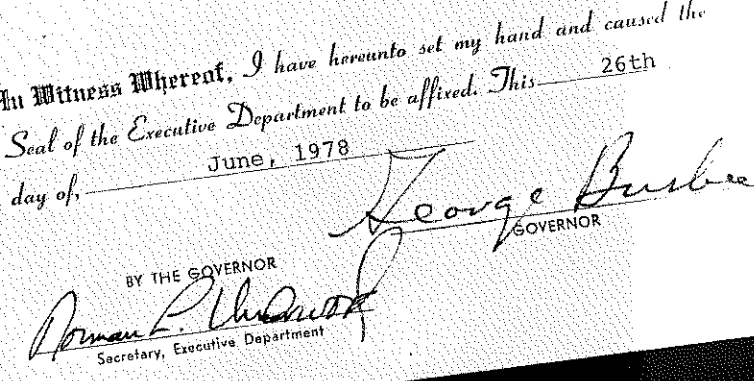 In Witness Whereof, I have hereunto set my hand and caused the
Seal of the Executive Department to be affixed. This 26th
day of, June, 1978
George Busbee
GOVERNOR
BY THE GOVERNOR
Norman L. Underwood
Secretary, Executive Department